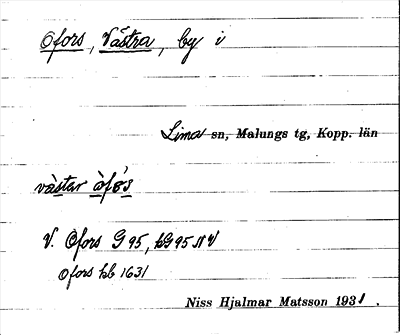 Ofors, Västra, by i
Lima sn, Malungs tg, Kopp. län
västar
V. Ofors G 95, kG 95 NV
Ofors kb 1631
Niss Hjalmar Matsson 1931.